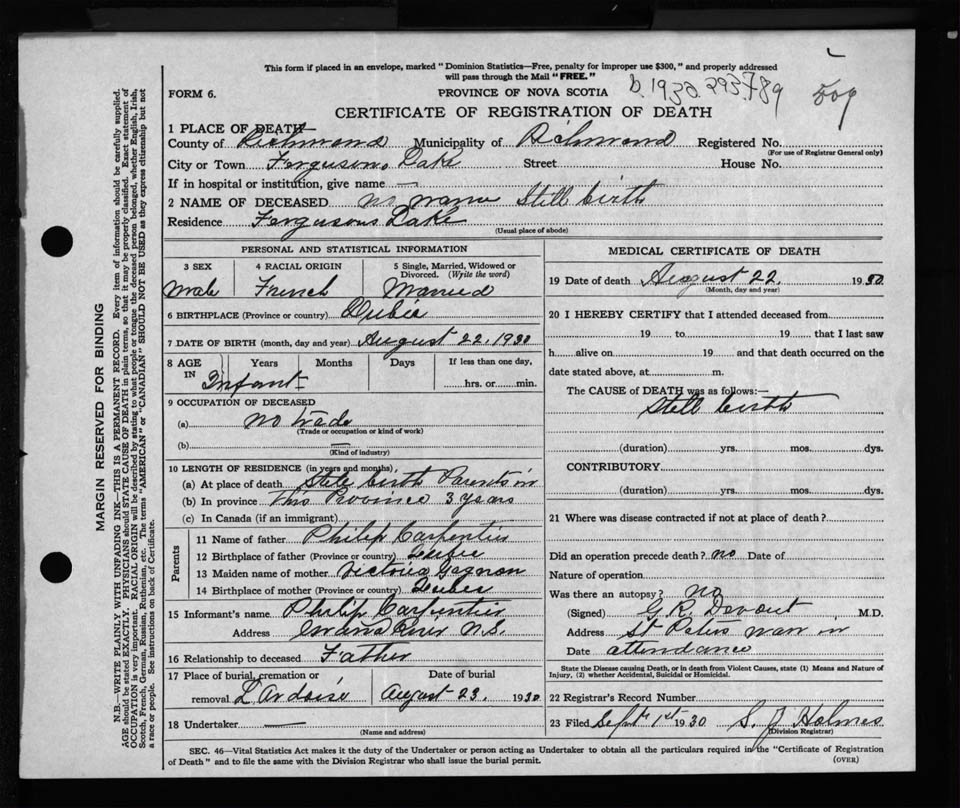 This form if placed in an envelope, marked "Dominion Statistics—Free, penalty for improper use $300," and properly addressed
will pass through the Mail "FREE."
FORM 6.
PROVINCE OF NOVA SCOTIA
b.1930.293789
509
CERTIFICATE OF REGISTRATION OF DEATH
1 PLACE OF DEATH—
County of Richmond Municipality of Richmond Registered No.
(For use of Registrar General only)
City or Town Fergusons Lake Street House No.
If in hospital or institution, give name —
2 NAME OF DECEASED no name Still birth
Residence Fergusons Lake
(Usual place of abode)
PERSONAL AND STATISTICAL INFORMATION
3 SEX 4 RACIAL ORIGIN 5 Single, Married, Widowed or
Divorced. (Write the word)
Male French Married
6 BIRTHPLACE (Province or country)
7 DATE OF BIRTH (month, day and year) August 22, 1930
8 AGE IN Years Months Days If less than one day,
Infant hrs. or min.
9 OCCUPATION OF DECEASED
(a) no trade
(Trade or occupation or kind of work)
(b) —
(Kind of industry)
10 LENGTH OF RESIDENCE (in years and months),
(a) At place of death Still birth Parents in
(b) In province this Province 3 years
(c) In Canada (if an immigrant)
Parents
11 Name of father Philip Carpentier
12 Birthplace of father (Province or country)
13 Maiden name of mother Victoria Gagnon
14 Birthplace of mother (Province or country)
15 Informant's name Philip Carpentier
Address Grand River N.S.
16 Relationship to deceased Father
17 Place of burial, cremation or Date of burial
removal L'Ardoise August 23, 1930
18 Undertaker —
(Name and address)
MEDICAL CERTIFICATE OF DEATH
19 Date of death August 22, 1930
(Month, day and year)
20 I HEREBY CERTIFY that I attended deceased from
19 to 19 that I last saw
h alive on 19 and that death occurred on the
date stated above, at m.
The CAUSE of DEATH was as follows:—
Still birth
(duration) yrs. mos. dys.
CONTRIBUTORY
(duration) yrs. mos. dys.
21 Where was disease contracted if not at place of death?
Did an operation precede death? no Date of
Nature of operation
Was there an autopsy? no
(Signed) G.R. M.D.
Address St Peters was in
Date attendance
State the Disease causing Death, or in death from Violent Causes, state (1) Means and Nature of
Injury, (2) whether Accidental, Suicidal or Homicidal.
22 Registrar's Record Number
23 Filed Sept 1st 1930 S. J Holmes
(Division Registrar)
SEC. 46—Vital Statistics Act makes it the duty of the Undertaker or person acting as Undertaker to obtain all the particulars required in the "Certificate of Registration
of Death" and to file the same with the Division Registrar who shall issue the burial permit.
(OVER)
MARGIN RESERVED FOR BINDING
N.B.—WRITE PLAINLY WITH UNFADING INK—THIS IS A PERMANENT RECORD. Every item of information should be carefully supplied.
AGE should be stated EXACTLY. PHYSICIANS should STATE CAUSE OF DEATH in plain terms, so that it may be properly classified. Exact statement of
OCCUPATION is very important. RACIAL ORIGIN will be described by stating to what people or tongue the deceased person belonged, whether English, Irish,
Scotch, French, German, Russian, Ruthenian, etc. The terms "AMERICAN" or "CANADIAN" SHOULD NOT BE USED as they express citizenship but not
a race or people. See instructions on back of Certificate.